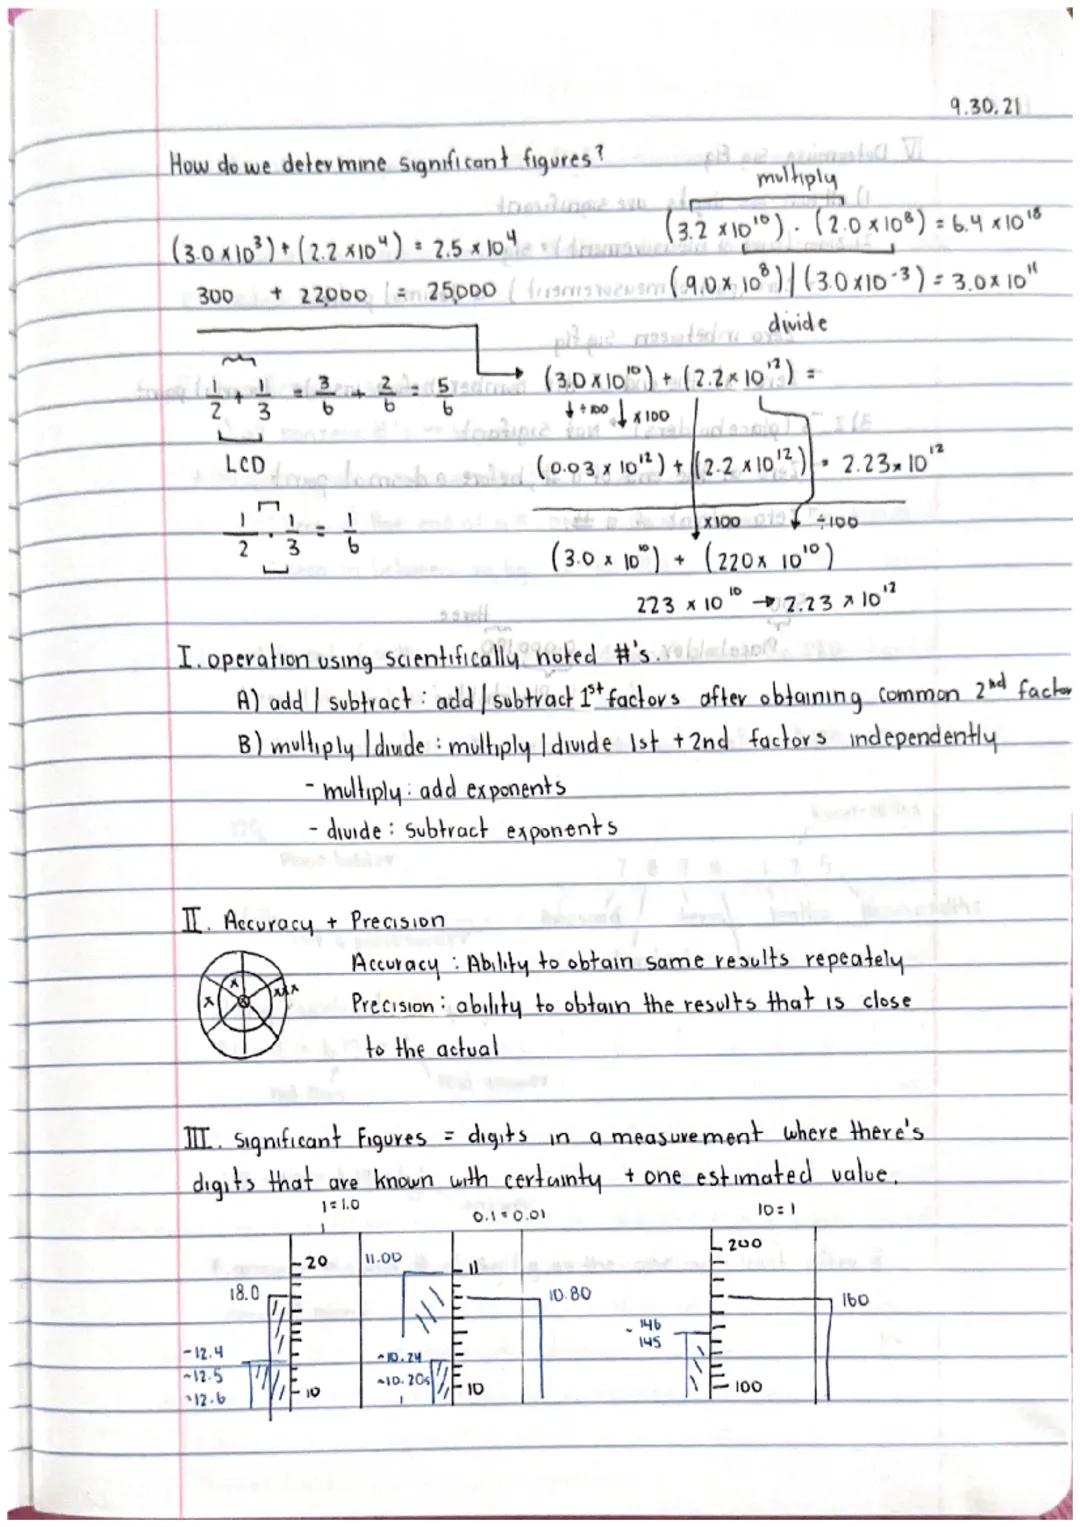 9.30.21
How do we determine significant figures?
multiply
(3.2 x 10^10) · (2.0 x 10^8) = 6.4 x 10^18
(3.0 x 10^3) + (2.2 x 10^4) = 2.5 x 10^4
(9.0 x 10^8) / (3.0 x 10^-3) = 3.0 x 10^11
300 + 22,000 = 25,000
divide
(3.0 x 10^10) + (2.2 x 10^12) =
1/2 + 1/3 = 3/6 + 2/6 = 5/6
÷100 x100
LCD
(0.03 x 10^12) + (2.2 x 10^12) = 2.23 x 10^12
x100 ÷100
1/2 · 1/3 = 1/6
(3.0 x 10^10) + (220 x 10^10)
223 x 10^10 → 2.23 x 10^12
I. operation using scientifically noted #'s.
A) add / subtract : add / subtract 1st factors after obtaining common 2nd factor
B) multiply / divide : multiply / divide 1st + 2nd factors independently
- multiply : add exponents
- divide : subtract exponents
II. Accuracy + Precision
Accuracy : Ability to obtain same results repeately
Precision : ability to obtain the results that is close
to the actual
x x xxx
III. Significant Figures = digits in a measurement where there's
digits that are known with certainty + one estimated value.
1 = 1.0
0.1 = 0.01
10 = 1
20
11.00
11
200
18.0
10.80
160
~146
145
~12.4
~12.5
~12.6
~10.24
~10.20
10
10
100